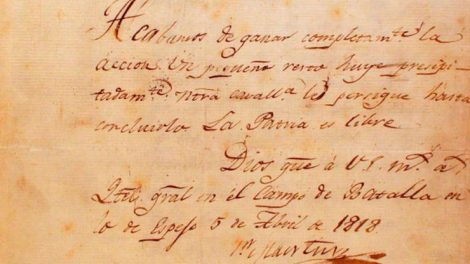 Acabamos de ganar completam.te la
accion. Un pequeño resto huye presipi-
tadam.te Ntra cavall.a lo persigue hasta
concluirlo. La Patria es libre
Dios gue á V S. m.s a.s
Qtel. gral en el Campo de Batalla en
lo de Espejo 5 de Abril de 1818